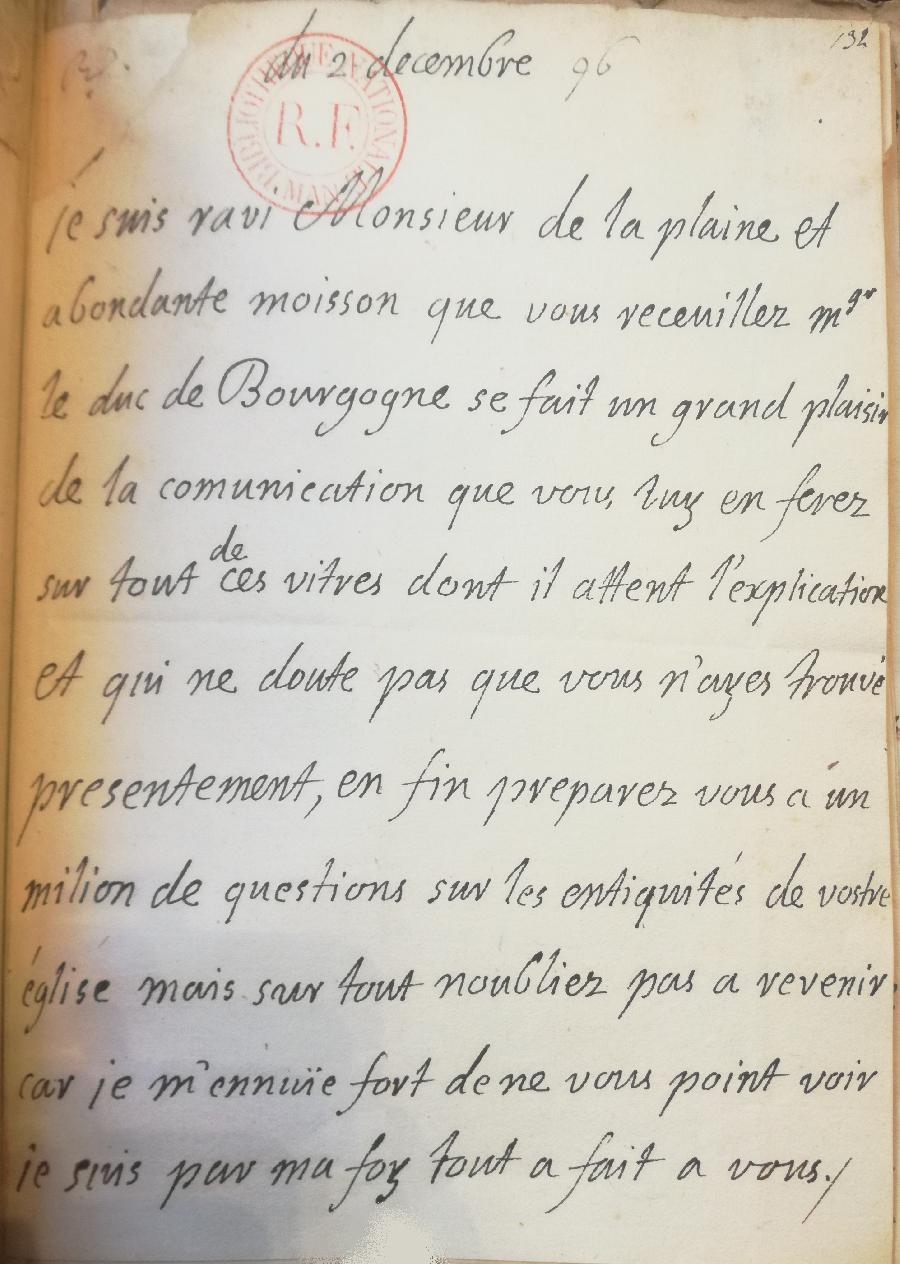 132
du 2 decembre 96
BIBLIOTHEQUE NATIONALE MAN
R.F.
je suis ravi Monsieur de la plaine et
abondante moisson que vous receuillez mgr
le duc de Bourgogne se fait un grand plaisir
de la comunication que vous luy en ferez
sur tout de ces vitres dont il attent l'explication
et qui ne doute pas que vous n'ayes trouvé
presentement, en fin preparez vous a un
milion de questions sur les entiquités de vostre
église mais sur tout noubliez pas a revenir
car je m'ennuïe fort de ne vous point voir
je suis par ma foy tout a fait a vous./